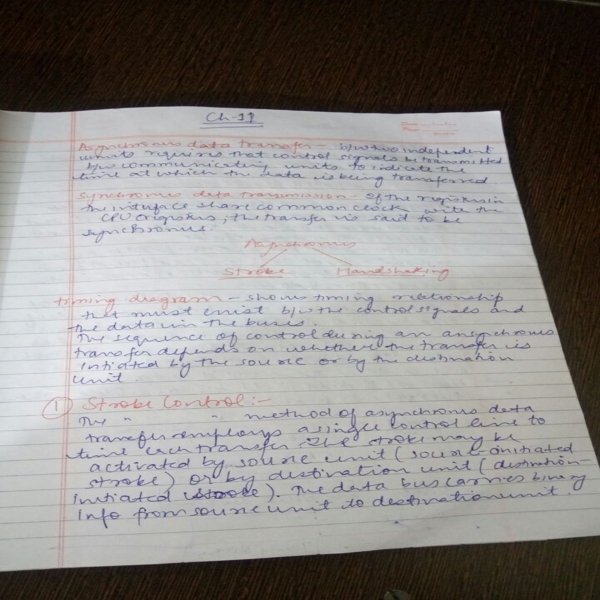 Ch-11
Asynchronous data transfer - b/w two independent
units requires that control signals be transmitted
b/w communicating units to indicate the
time at which the data is being transferred
Synchronous data transmission - If the registers in
the interface share common clock with the
CPU registers, the transfer is said to be
synchronous.
Asynchronus
Strobe Handshaking
timing diagram - shows timing relationship
that must exist b/w the control signals and
the data in the buses.
The sequence of control during an asynchronous
transfer depends on whether the transfer is
intiated by the source or by the destination
unit.
① Strobe Control:-
The " " method of asynchronus data
transfer employs a single control line to
time each transfer. The stroke may be
activated by source unit (source-initiated
stroke) or by destination unit (destination
initiated strobe). The data bus carries binary
info from source unit to destination unit.